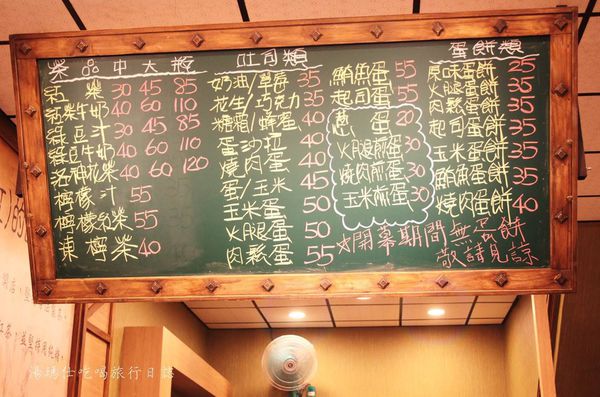 茶品中大瓶
紅茶 30 45 85
紅茶牛奶 40 60 110
綠豆汁 30 45 85
綠豆牛奶 40 60 110
洛神花茶 40 60 120
檸檬汁 55
檸檬紅茶 55
凍檸茶 40
吐司類
奶油/草莓 35
花生/巧克力 35
糖霜/蜂蜜 40
蛋沙拉 40
燒肉蛋 45
蛋/玉米
玉米蛋 50
火腿蛋 50
肉鬆蛋 55
鮪魚蛋 55
起司蛋 55
蔥蛋 20
火腿煎蛋 30
燒肉煎蛋 30
玉米煎蛋 30
蛋餅類
原味蛋餅 25
火腿蛋餅 35
肉鬆蛋餅 35
起司蛋餅 35
玉米蛋餅 35
鮪魚蛋餅 35
燒肉蛋餅 40
☆開幕期間無蛋餅
敬請見諒
湯瑪仕吃喝旅行日誌